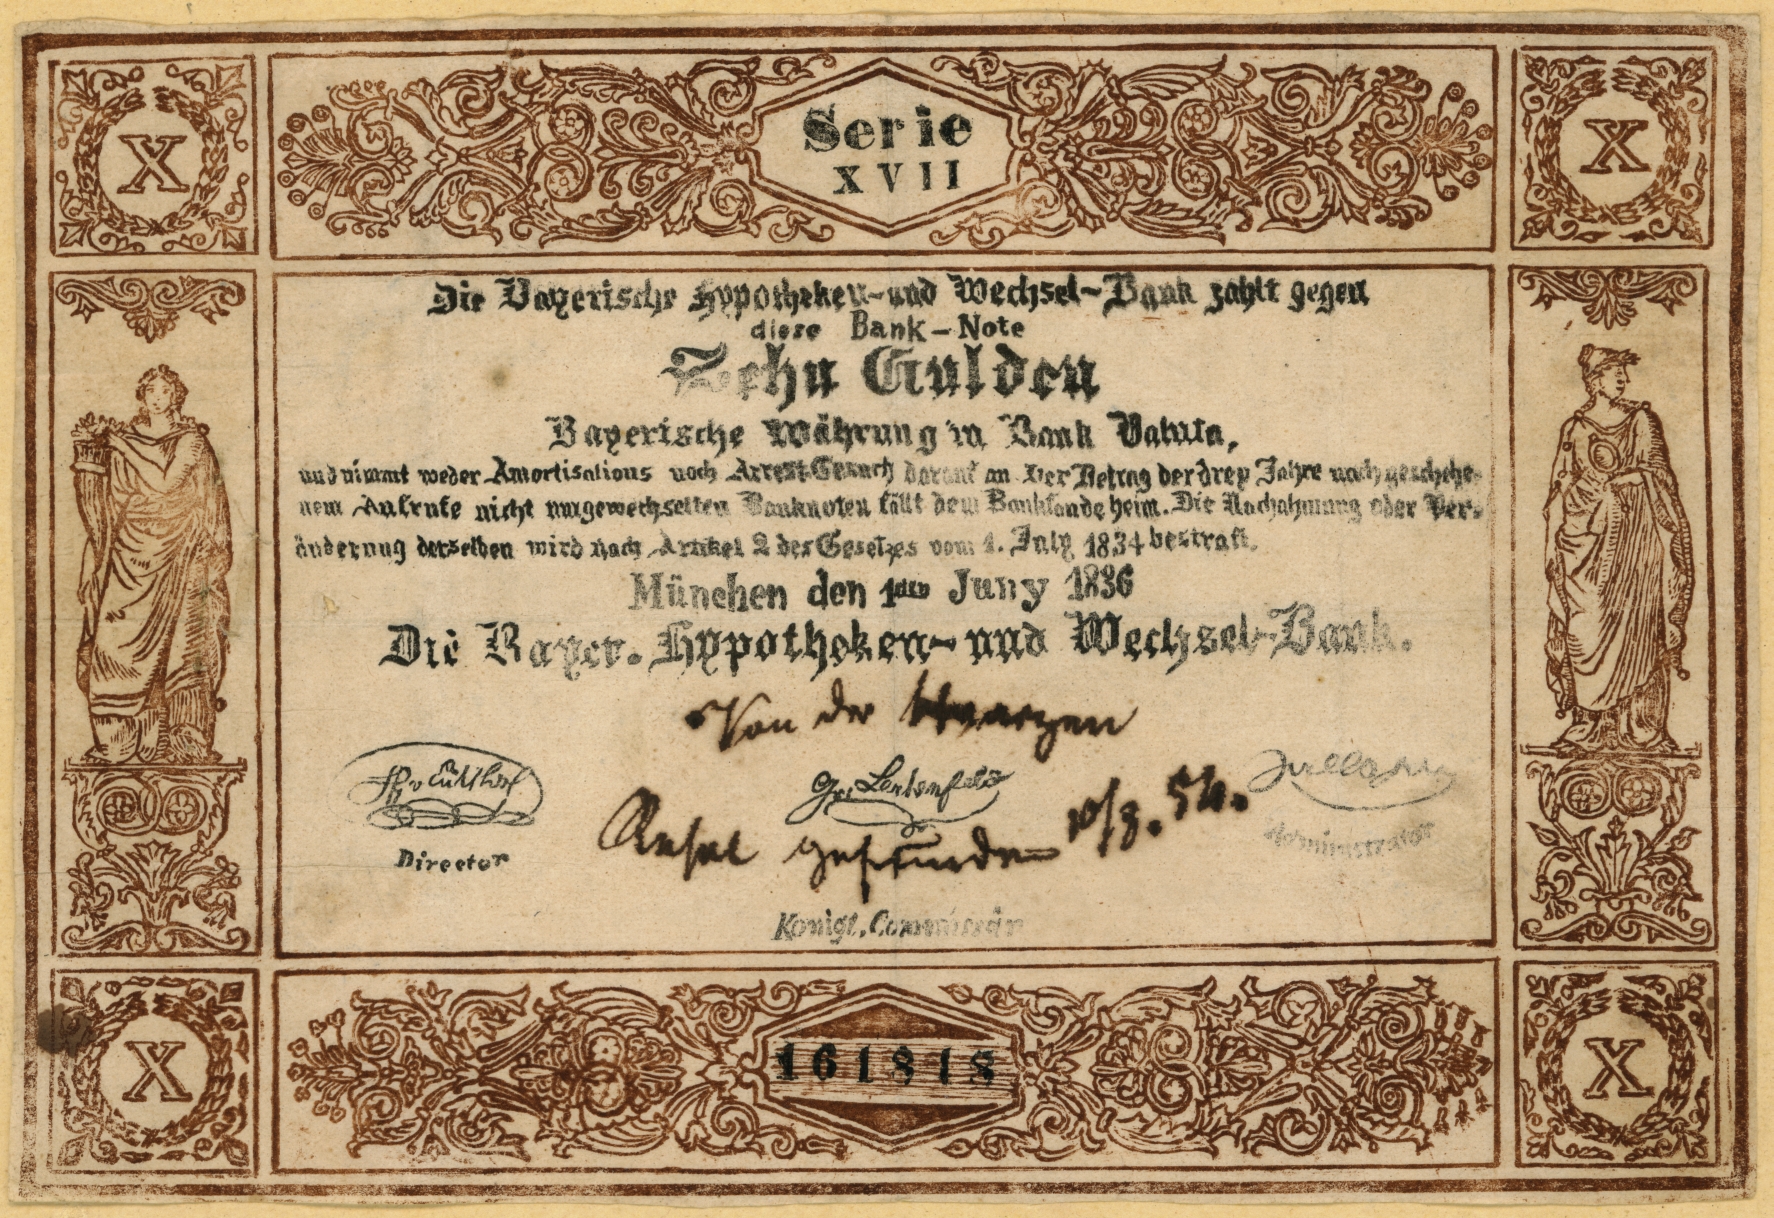 X
Serie
XVII
X
Die Bayerische Hypotheken-und Wechsel-Bank zahlt gegen
diese Bank-Note
Zehn Gulden
Bayerische Währung in Bank Valuta,
und nimmt weder Amortisations noch Arrest-Gesuch darauf an. Der Betrag der drey Jahre nach geschehe-
nem Aufrufe nicht umgewechselten Banknoten fällt dem Bankfonde heim. Die Nachahmung oder Ver-
änderung derselben wird nach Artikel 2 des Gesetzes vom 1. July 1834 bestraft.
München den 1ten Juny 1836
Die Bayer. Hypotheken- und Wechsel-Bank.
Von der
Director
Administrator
Königl. Commissär
X
161818
X